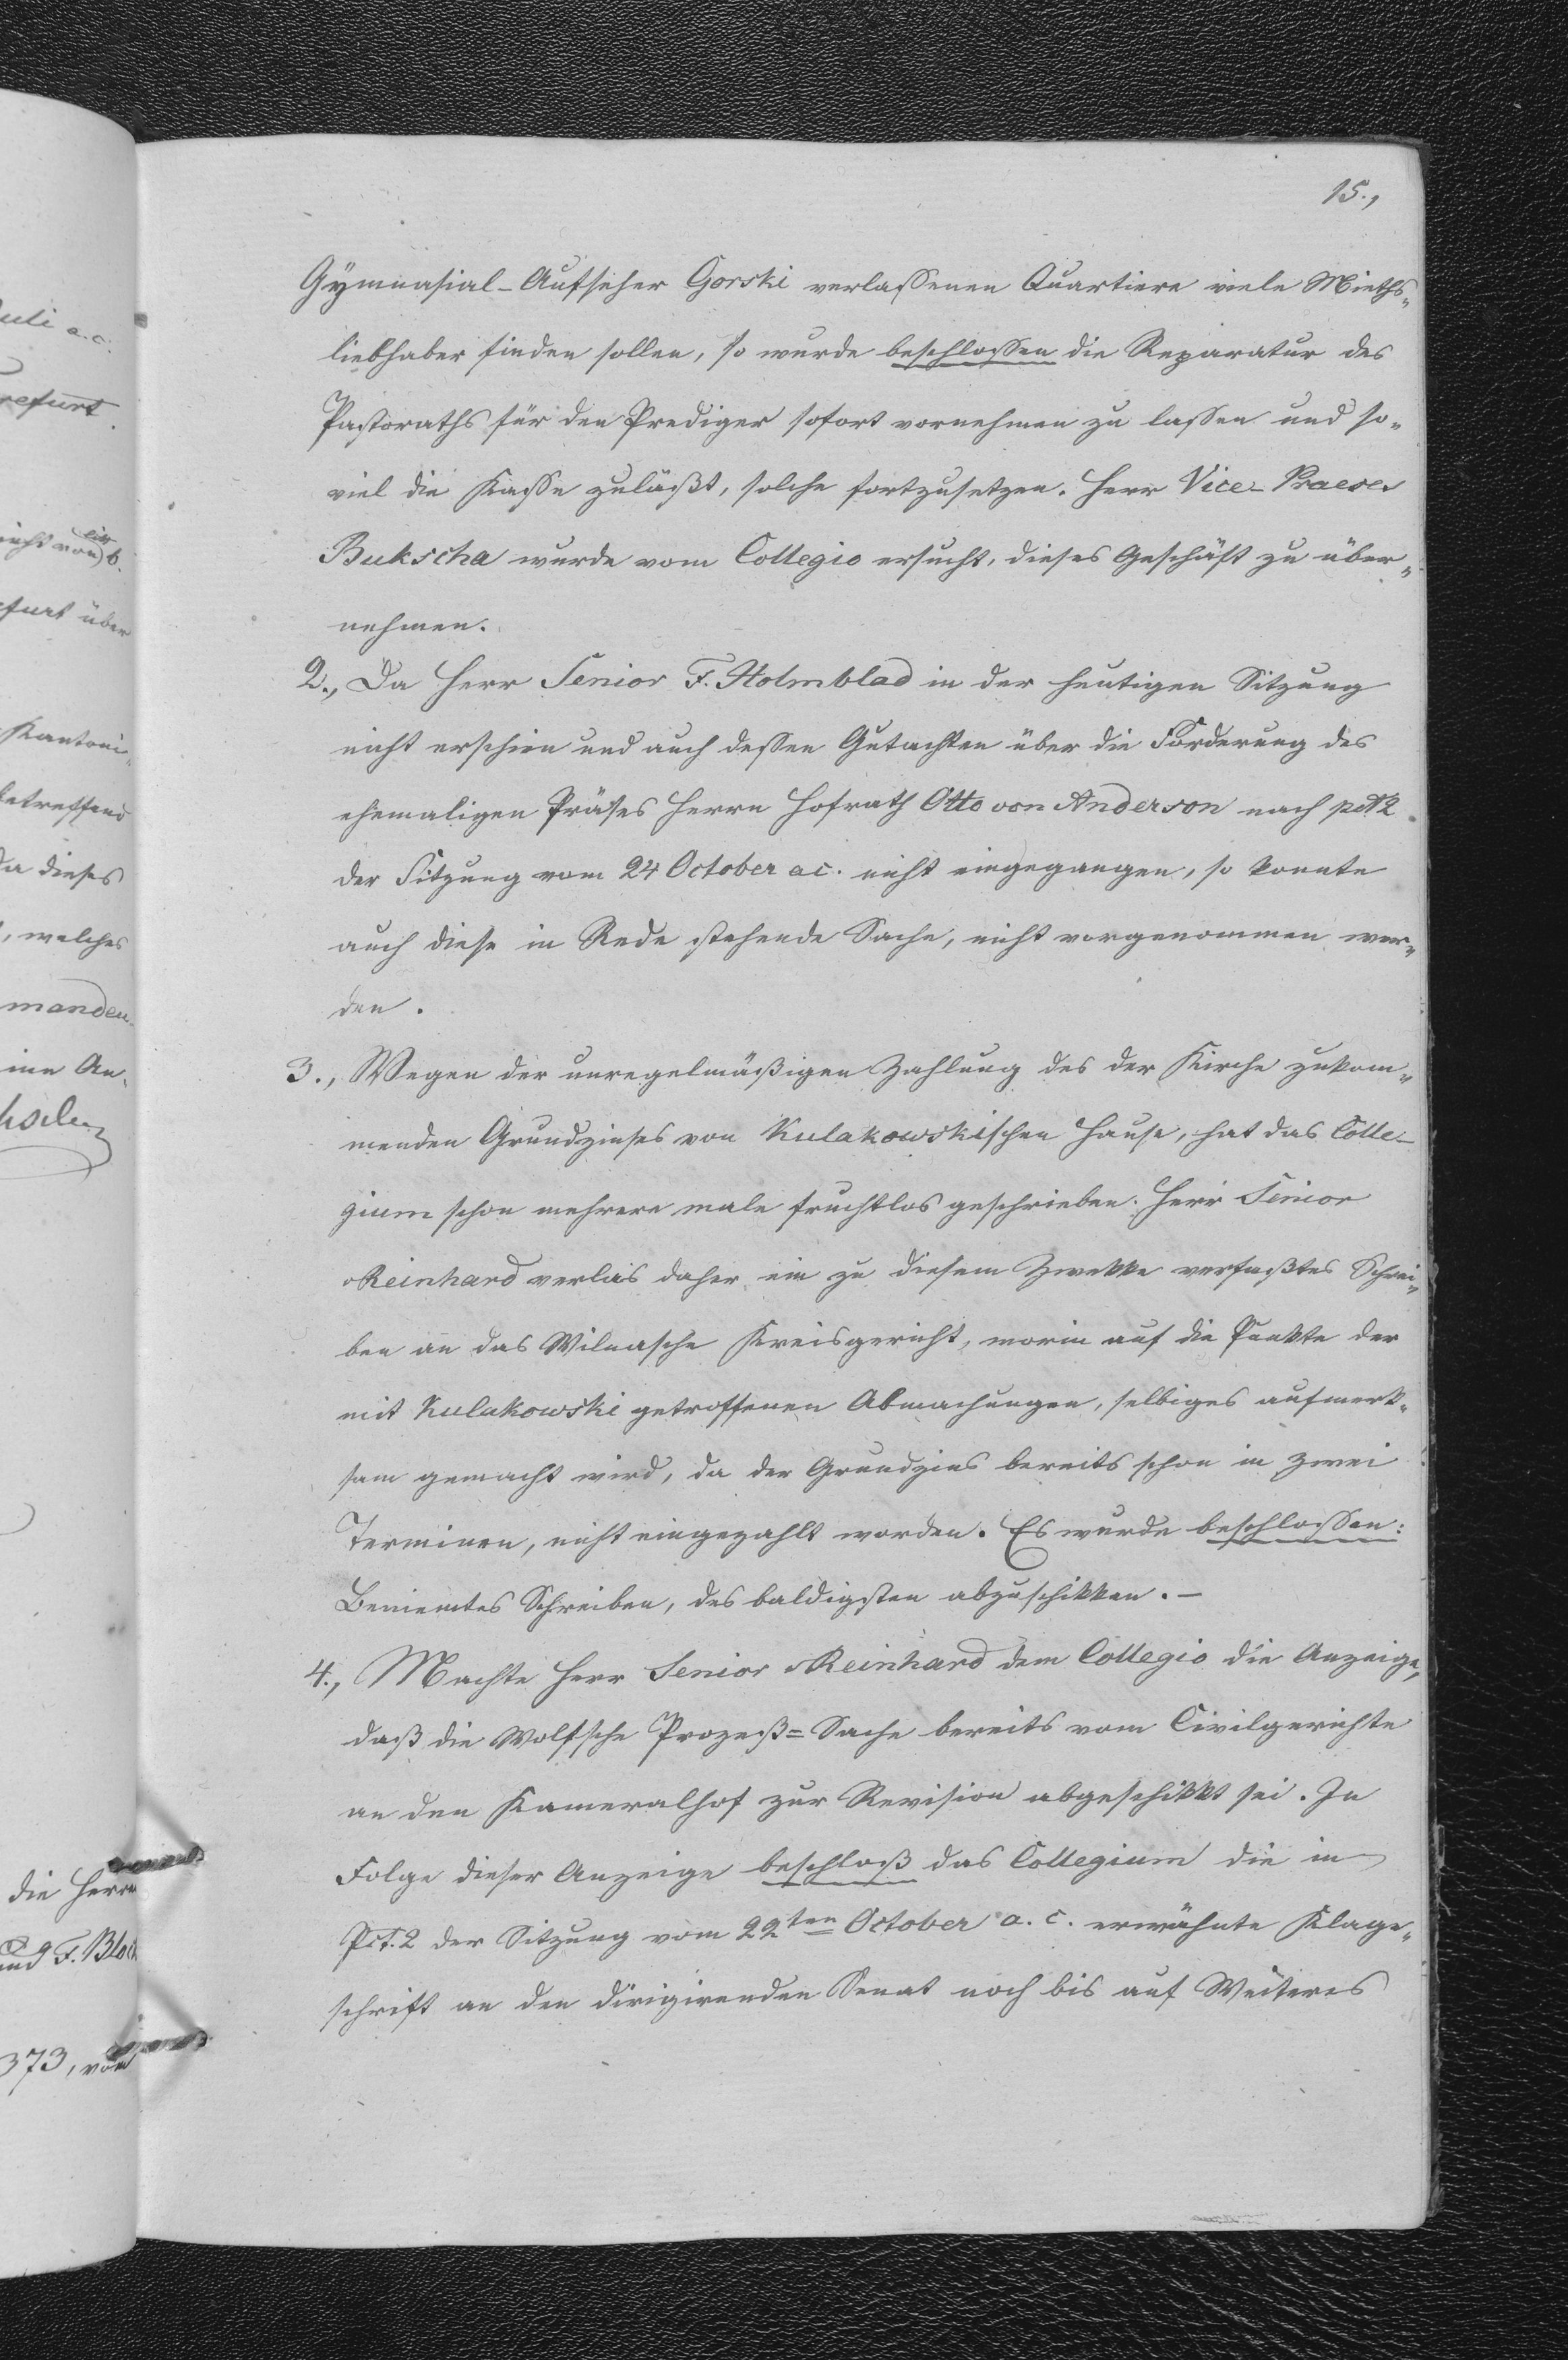 15.,
Gymnasial-Aufseher Gorski verlassenen Quartiere viele Mieths-
liebhaber finden sollen, so wurde beschlossen die Reparatur des
Pastoraths für den Prediger sofort vornehmen zu lassen und so-
viel die Kasse zuläßt, solche fortzusetzen. Herr Vice-Praeses
Bukscha wurde vom Collegio ersucht, dieses Geschäft zu über-
nehmen.
2., Da Herr Senior F. Holmblad in der heutigen Sitzung
nicht erschien und auch dessen Gutachten über die Forderung des
ehemaligen Präses Herrn Hofrath Otto von Anderson nach pct 2
der Sitzung vom 24 October a c. nicht eingegangen, so konnte
auch diese in Rede stehende Sache, nicht vorgenommen wer-
den.
3., Wegen der unregelmäßigen Zahlung des der Kirche zukom-
menden Grundzinses von Kulakowskischen Hause, hat das Colle-
gium schon mehrere male fruchtlos geschrieben. Herr Senior
Reinhard verlas daher ein zu diesem Zwekke verfaßtes Schrei-
ben an das Wilnasche Kreisgericht, worin auf die Punkte der
mit Kulakowski getroffenen Abmachungen, selbiges aufmerk-
sam gemacht wird, da der Grundzins bereits schon in zwei
Terminen, nicht eingezahlt worden. Es wurde beschlossen:
Beniemtes Schreiben, des baldigsten abzuschikken. -
4., Machte Herr Senior Reinhard dem Collegio die Anzeige,
daß die Wolfsche Prozeß-Sache bereits vom Civilgerichte
an den Kameralhof zur Revision abgeschikkt sei. In
Folge dieser Anzeige beschloß das Collegium die in
Pct. 2 der Sitzung vom 22ten October a. c. erwähnte Klage-
schrift an den dirigirenden Senat noch bis auf Weiteres